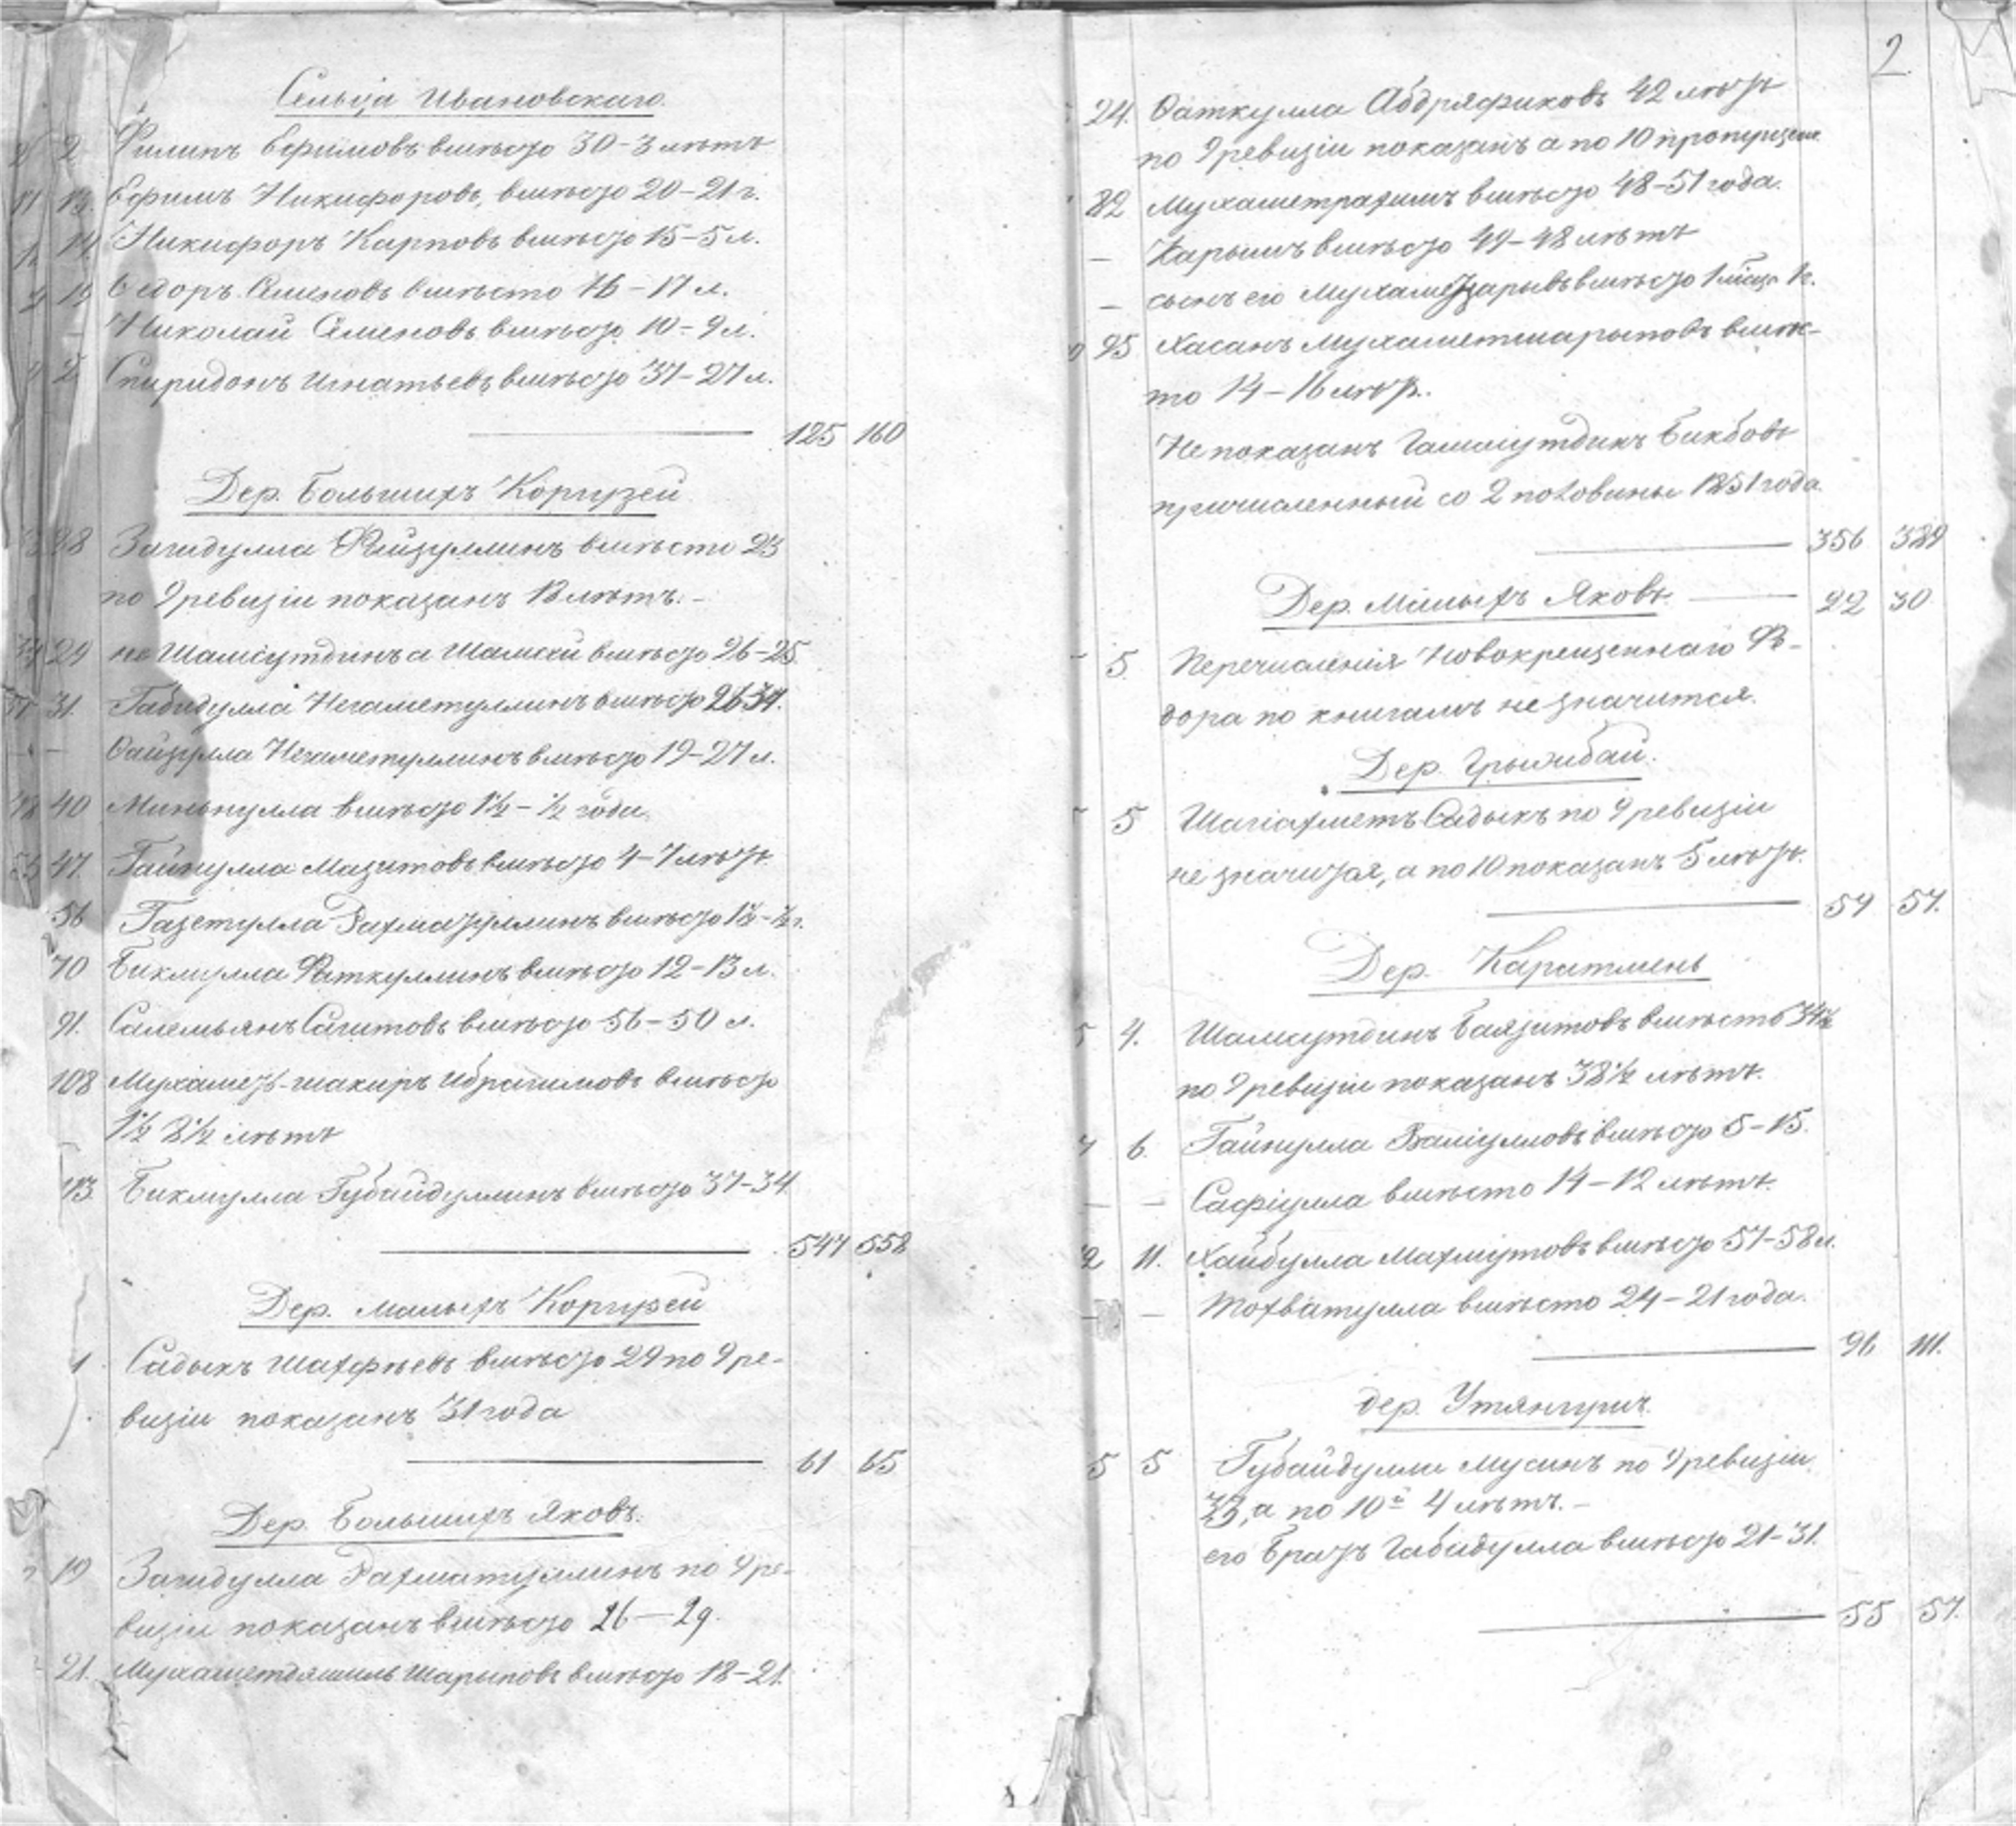 Сельца Ивановскаго.
2 2 Филипъ Ефимовъ вмѣсто 30-3 лѣтъ
11 13. Ефимъ Никифоровъ, вмѣсто 20-21 г.
14 Никифоръ Карповъ вмѣсто 15-5 л.
15 Ѳедоръ Семеновъ вмѣсто 16-17 л.
— Николай Семеновъ вмѣсто 10-9 л.
2 Спиридонъ Игнатьевъ вмѣсто 37-27 л.
125 160
Дер. Большихъ Коргузей
28 Загидулла Фейзуллинъ вмѣсто 23
по 9 ревизіи показанъ 18 лѣтъ.-
29 не Шамсутдинъ а Шамсей вмѣсто 26-25.
31. Габидулла Негаметуллинъ вмѣсто 26 34.
— Ѳайзулла Негаметуллинъ вмѣсто 19-27 л.
40 Миннулла вмѣсто 1½-½ года.
47. Гайнулла Мазитовъ вмѣсто 4-7 лѣтъ
56 Газетулла Рахматуллинъ вмѣсто 1½-½ г.
70 Бикмулла Фаткуллинъ вмѣсто 12-13 л.
91. Салемьянъ Сагитовъ вмѣсто 56-50 л.
108 Мухаметъ-шакиръ Ибрагимовъ вмѣсто
1½ 8½ лѣтъ
113. Бикмулла Губайдуллинъ вмѣсто 37-34.
547 558
Дер. Малыхъ Коргузей
1 Садыкъ вмѣсто 29 по 9 ре-
визіи показанъ 31 года
61 65
Дер. Большихъ Яковъ.
19 Загидулла Рахматуллинъ по 9 ре-
визіи показанъ вмѣсто 26-29.
21. Шарыповъ вмѣсто 18-21.
2.
24. Ѳаткулла Абдряфиковъ 42 лѣтъ
по 9 ревизіи показанъ а по 10 пропущенъ
82 Мухаметрахимъ вмѣсто 48-51 года.
— Карымъ вмѣсто 49-48 лѣтъ
— сынъ его вмѣсто 1 мѣсяц. 1 г.
95 Хасанъ Мухаметшарыповъ вмѣс-
то 14-16 лѣтъ.
Не показанъ Гамалутдинъ Бикбовъ
причисленный со 2 половины 1851 года.
356 389
Дер. Малыхъ Яковъ. 22 30
5 Перечисленія Новокрещеннаго Ѳе-
дора по книгамъ не значится.
Дер. Грызибаш.
5 Шагіахметъ Садыкъ по 9 ревизіи
не значится, а по 10 показанъ 5 лѣтъ.
54 57.
Дер. Каратмень
4. Шамсутдинъ Баязитовъ вмѣсто 34½
по 9 ревизіи показанъ 38½ лѣтъ.
6. Гайнулла Валіулловъ вмѣсто 5-15.
— Сафіулла вмѣсто 14-12 лѣтъ.
11. Хайбулла Махмутовъ вмѣсто 57-58 л.
— Тохватулла вмѣсто 24-21 года.
96 111.
дер. Утянгуш.
5 5 Губайдулла Мусинъ по 9 ревизіи
33, а по 10й 4 лѣтъ.-
его братъ Габидулла вмѣсто 21-31.
55 57.